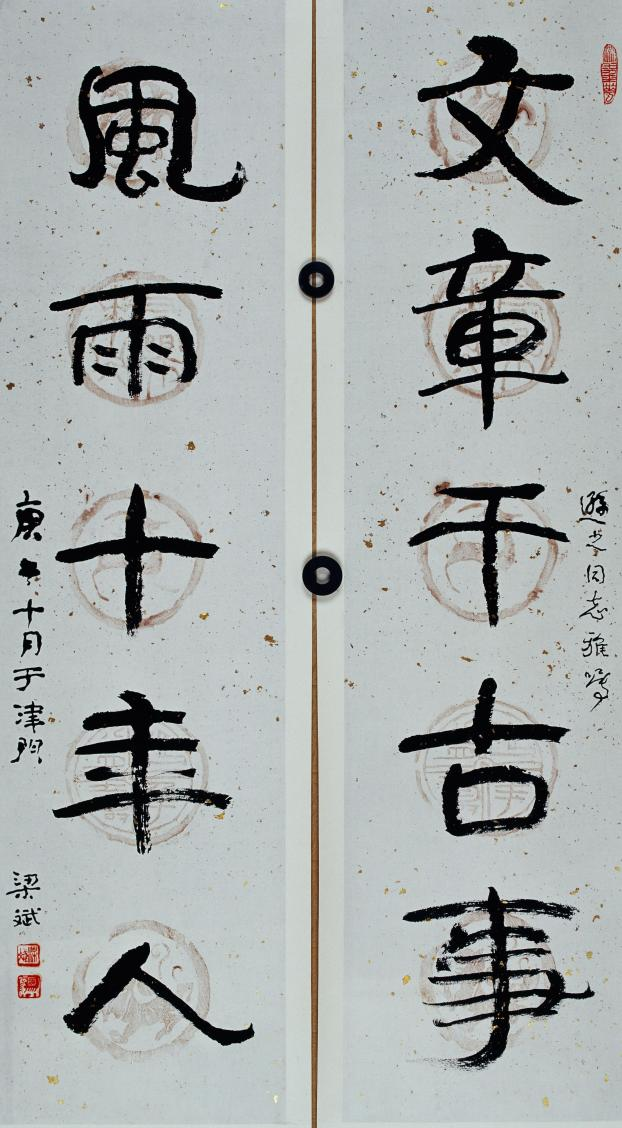 文章千古事
同志雅
風雨十年人
庚午十月于津門
梁斌